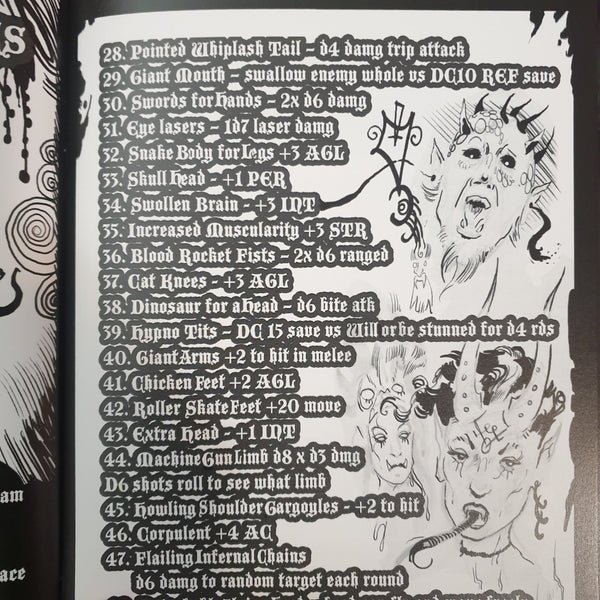 28. Pointed Whiplash Tail - d4 damg trip attack
29. Giant Mouth - swallow enemy whole vs DC10 REF save
30. Swords for Hands - 2x d6 damg
31. Eye lasers - 1d7 laser damg
32. Snake Body for Legs +3 AGL
33. Skull Head - +1 PER
34. Swollen Brain - +3 INT
35. Increased Muscularity +3 STR
36. Blood Rocket Fists - 2x d6 ranged
37. Cat Knees - +3 AGL
38. Dinosaur for a Head - d6 bite atk
39. Hypno Tits - DC 15 save vs Will or be stunned for d4 rds
40. Giant Arms +2 to hit in melee
41. Chicken Feet +2 AGL
42. Roller Skate Feet +20 move
43. Extra Head - +1 INT
44. Machine Gun Limb d8 x d3 dmg
D6 shots roll to see what limb
45. Howling Shoulder Gargoyles - +2 to hit
46. Corpulent +4 AC
47. Flailing Infernal Chains
d6 damg to random target each round